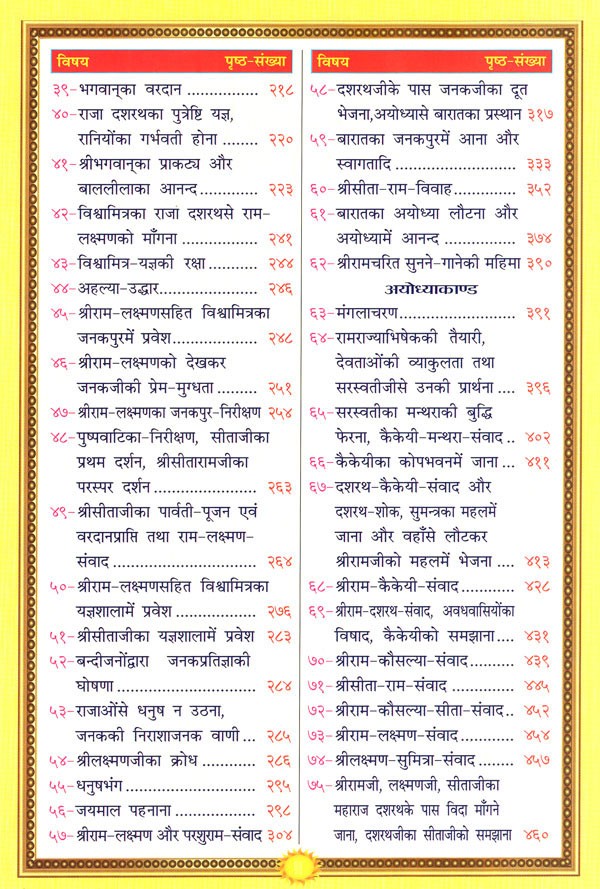 विषय पृष्ठ-संख्या
३९-भगवान्‌का वरदान ................ २१८
४०-राजा दशरथका पुत्रेष्टि यज्ञ,
रानियोंका गर्भवती होना ........ २२०
४१-श्रीभगवान्‌का प्राकट्य और
बाललीलाका आनन्द ............. २२३
४२-विश्वामित्रका राजा दशरथसे राम-
लक्ष्मणको माँगना ................. २४१
४३-विश्वामित्र-यज्ञकी रक्षा .......... २४४
४४-अहल्या-उद्धार..................... २४६
४५-श्रीराम-लक्ष्मणसहित विश्वामित्रका
जनकपुरमें प्रवेश................... २४८
४६-श्रीराम-लक्ष्मणको देखकर
जनकजीकी प्रेम-मुग्धता ......... २५१
४७-श्रीराम-लक्ष्मणका जनकपुर-निरीक्षण २५४
४८-पुष्पवाटिका-निरीक्षण, सीताजीका
प्रथम दर्शन, श्रीसीतारामजीका
परस्पर दर्शन ....................... २६३
४९-श्रीसीताजीका पार्वती-पूजन एवं
वरदानप्राप्ति तथा राम-लक्ष्मण-
संवाद ................................ २६४
५०-श्रीराम-लक्ष्मणसहित विश्वामित्रका
यज्ञशालामें प्रवेश .................. २७६
५१-श्रीसीताजीका यज्ञशालामें प्रवेश २८३
५२-बन्दीजनोंद्वारा जनकप्रतिज्ञाकी
घोषणा ............................... २८४
५३-राजाओंसे धनुष न उठना,
जनककी निराशाजनक वाणी .. २८५
५४-श्रीलक्ष्मणजीका क्रोध ............ २८६
५५-धनुषभंग ............................ २९५
५६-जयमाल पहनाना .................. २९८
५७-श्रीराम-लक्ष्मण और परशुराम-संवाद ३०४
विषय पृष्ठ-संख्या
५८-दशरथजीके पास जनकजीका दूत
भेजना,अयोध्यासे बारातका प्रस्थान ३१७
५९-बारातका जनकपुरमें आना और
स्वागतादि ........................... ३३३
६०-श्रीसीता-राम-विवाह.............. ३५२
६१-बारातका अयोध्या लौटना और
अयोध्यामें आनन्द ................. ३७४
६२-श्रीरामचरित सुनने-गानेकी महिमा ३९०
अयोध्याकाण्ड
६३-मंगलाचरण......................... ३९१
६४-रामराज्याभिषेककी तैयारी,
देवताओंकी व्याकुलता तथा
सरस्वतीजीसे उनकी प्रार्थना .... ३९६
६५-सरस्वतीका मन्थराकी बुद्धि
फेरना, कैकेयी-मन्थरा-संवाद .. ४०२
६६-कैकेयीका कोपभवनमें जाना ... ४११
६७-दशरथ-कैकेयी-संवाद और
दशरथ-शोक, सुमन्त्रका महलमें
जाना और वहाँसे लौटकर
श्रीरामजीको महलमें भेजना .... ४१३
६८-श्रीराम-कैकेयी-संवाद............ ४२८
६९-श्रीराम-दशरथ-संवाद, अवधवासियोंका
विषाद, कैकेयीको समझाना...... ४३१
७०-श्रीराम-कौसल्या-संवाद.......... ४३९
७१-श्रीसीता-राम-संवाद .............. ४४५
७२-श्रीराम-कौसल्या-सीता-संवाद.. ४५२
७३-श्रीराम-लक्ष्मण-संवाद ........... ४५४
७४-श्रीलक्ष्मण-सुमित्रा-संवाद ....... ४५७
७५-श्रीरामजी, लक्ष्मणजी, सीताजीका
महाराज दशरथके पास विदा माँगने
जाना, दशरथजीका सीताजीको समझाना ४६०